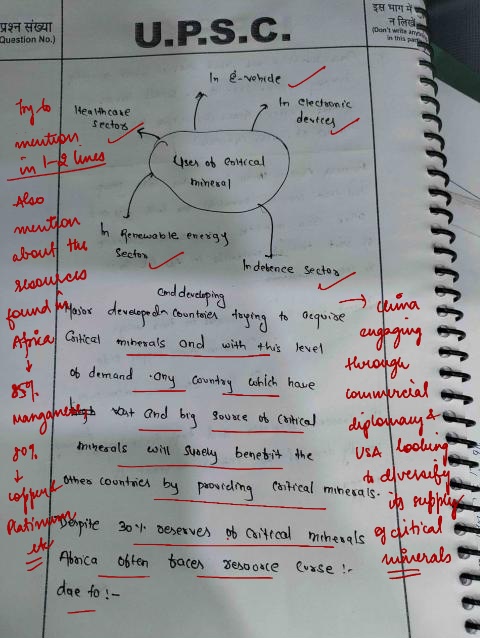 प्रश्न संख्या
(Question No.)
U.P.S.C.
इस भाग में
न लिखें
(Don't write any
in this par
In E-vehicle
Healthcare
sector
In electronic
devices
Uses of critical
mineral
In Renewable energy
sector
In defence sector
Try to
mention
in 1-2 lines
Also
mention
about the
resources
found in
Africa
↓
85%
manganese
80%
↓
copper &
Platinum
etc
and developing
Major developed countries trying to acquire
Critical minerals and with this level
of demand any country which have
vast and big source of critical
minerals will surely benefit the
other countries by providing critical minerals.
Despite 30% reserves of critical minerals
Africa often faces resource curse :-
due to :-
→ China
engaging
through
commercial
diplomacy &
USA looking
to diversify
its supply
of critical
minerals